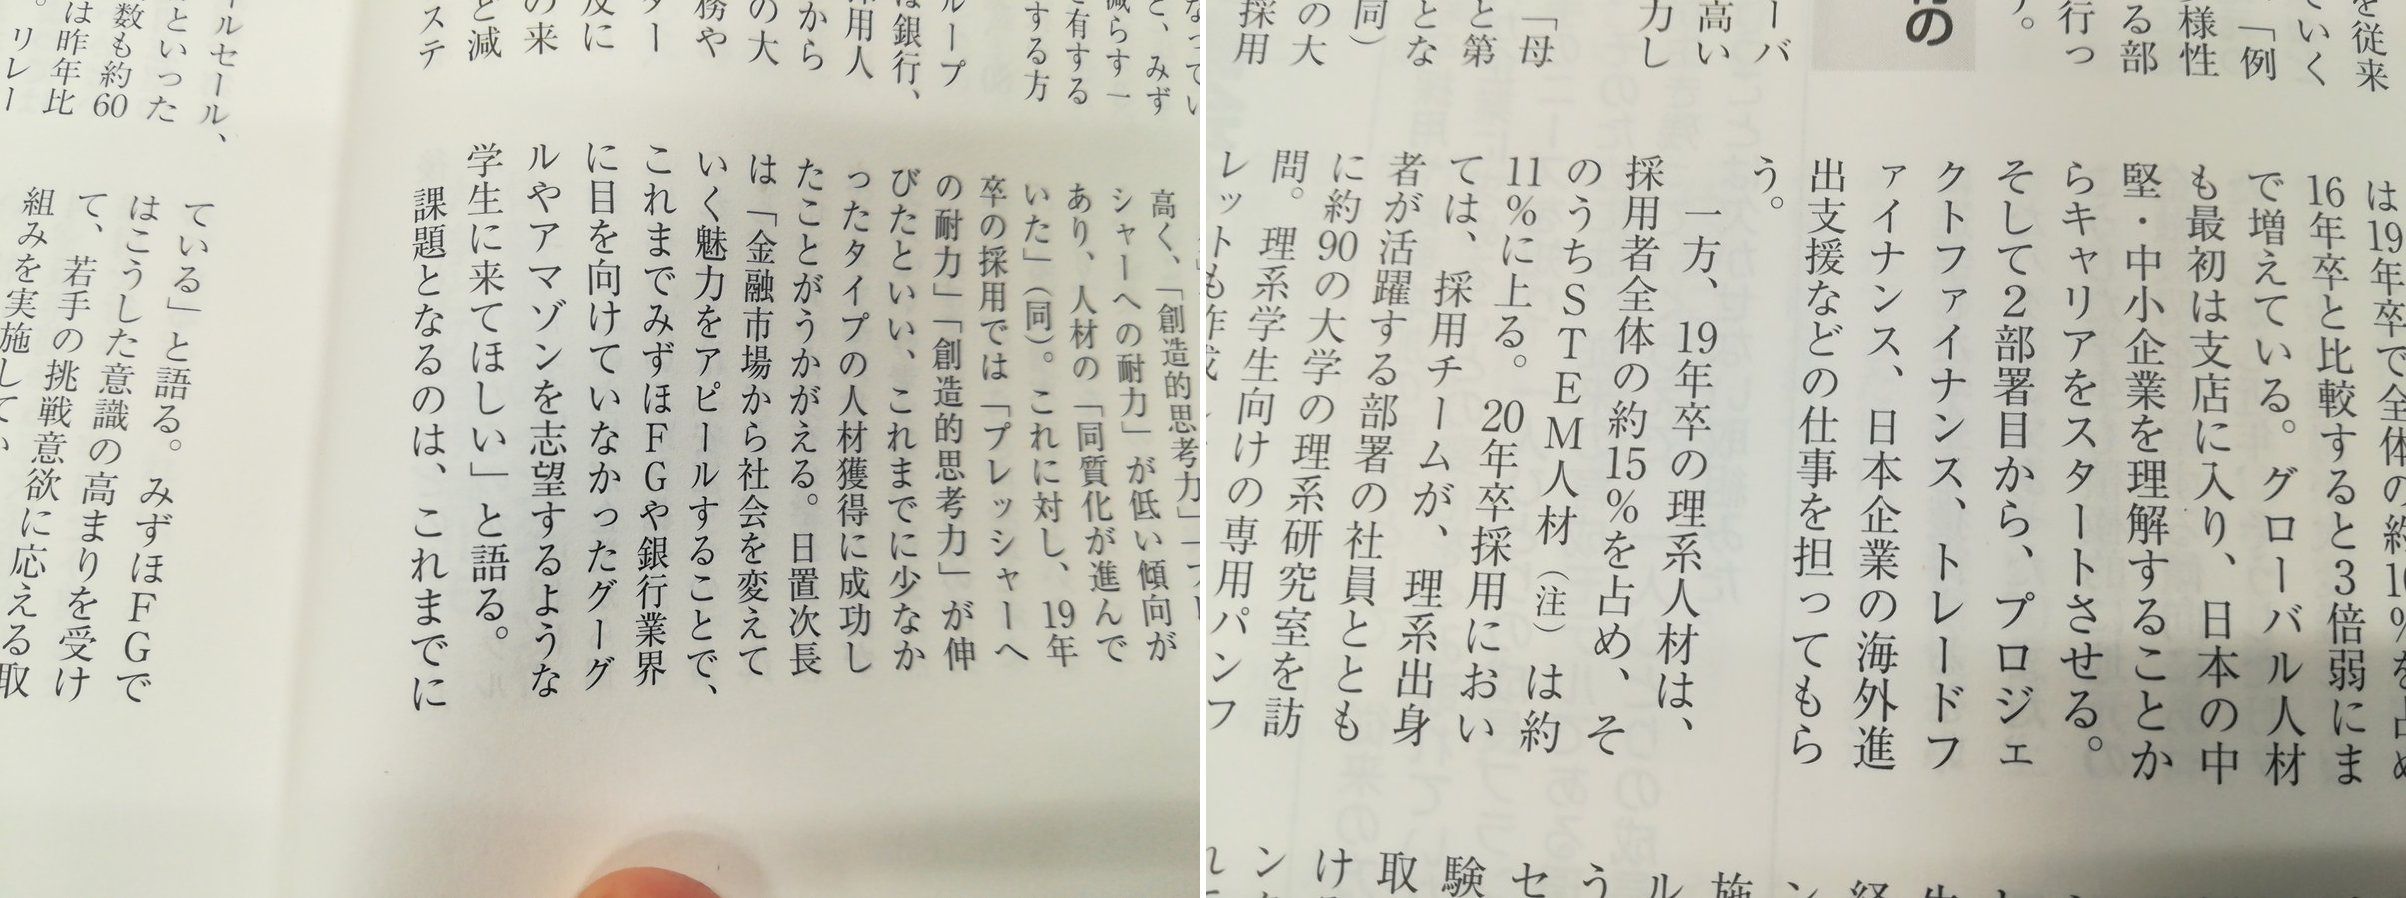 なってい
と、みず
減らす一
を有する
する方
ループ
は銀行、
採用人
から
の大
務や
ター
反に
の来
ど減
ステ
高く、「創造的思考力」「プレ
シャーへの耐力」が低い傾向が
あり、人材の「同質化が進んで
いた」(同)。これに対し、19年
卒の採用では「プレッシャーへ
の耐力」「創造的思考力」が伸
びたといい、これまでに少なか
ったタイプの人材獲得に成功し
たことがうかがえる。日置次長
は「金融市場から社会を変えて
いく魅力をアピールすることで、
これまでみずほFGや銀行業界
に目を向けていなかったグーグ
ルやアマゾンを志望するような
学生に来てほしい」と語る。
課題となるのは、これまでに
ールセール、
といった
数も約60
は昨年比
。リレー
ている」と語る。みずほFGで
はこうした意識の高まりを受け
て、若手の挑戦意欲に応える取
組みを実施してい
を従来
ていく
「例
様性
る部
行っ
す。
の
ーバ
高い
力し
「母
と第
とな
同)
の大
採用
は19年卒で全体の約10%を占め
16年卒と比較すると3倍弱にま
で増えている。グローバル人材
も最初は支店に入り、日本の中
堅・中小企業を理解することか
らキャリアをスタートさせる。
そして2部署目から、プロジェ
クトファイナンス、トレードフ
ァイナンス、日本企業の海外進
出支援などの仕事を担ってもら
う。
一方、19年卒の理系人材は、
採用者全体の約15%を占め、そ
のうちSTEM人材(注)は約
11%に上る。20年卒採用におい
ては、採用チームが、理系出身
者が活躍する部署の社員ととも
に約90の大学の理系研究室を訪
問。理系学生向けの専用パンフ
レットも作成
施
ル
う
セ
験
取
け
ン